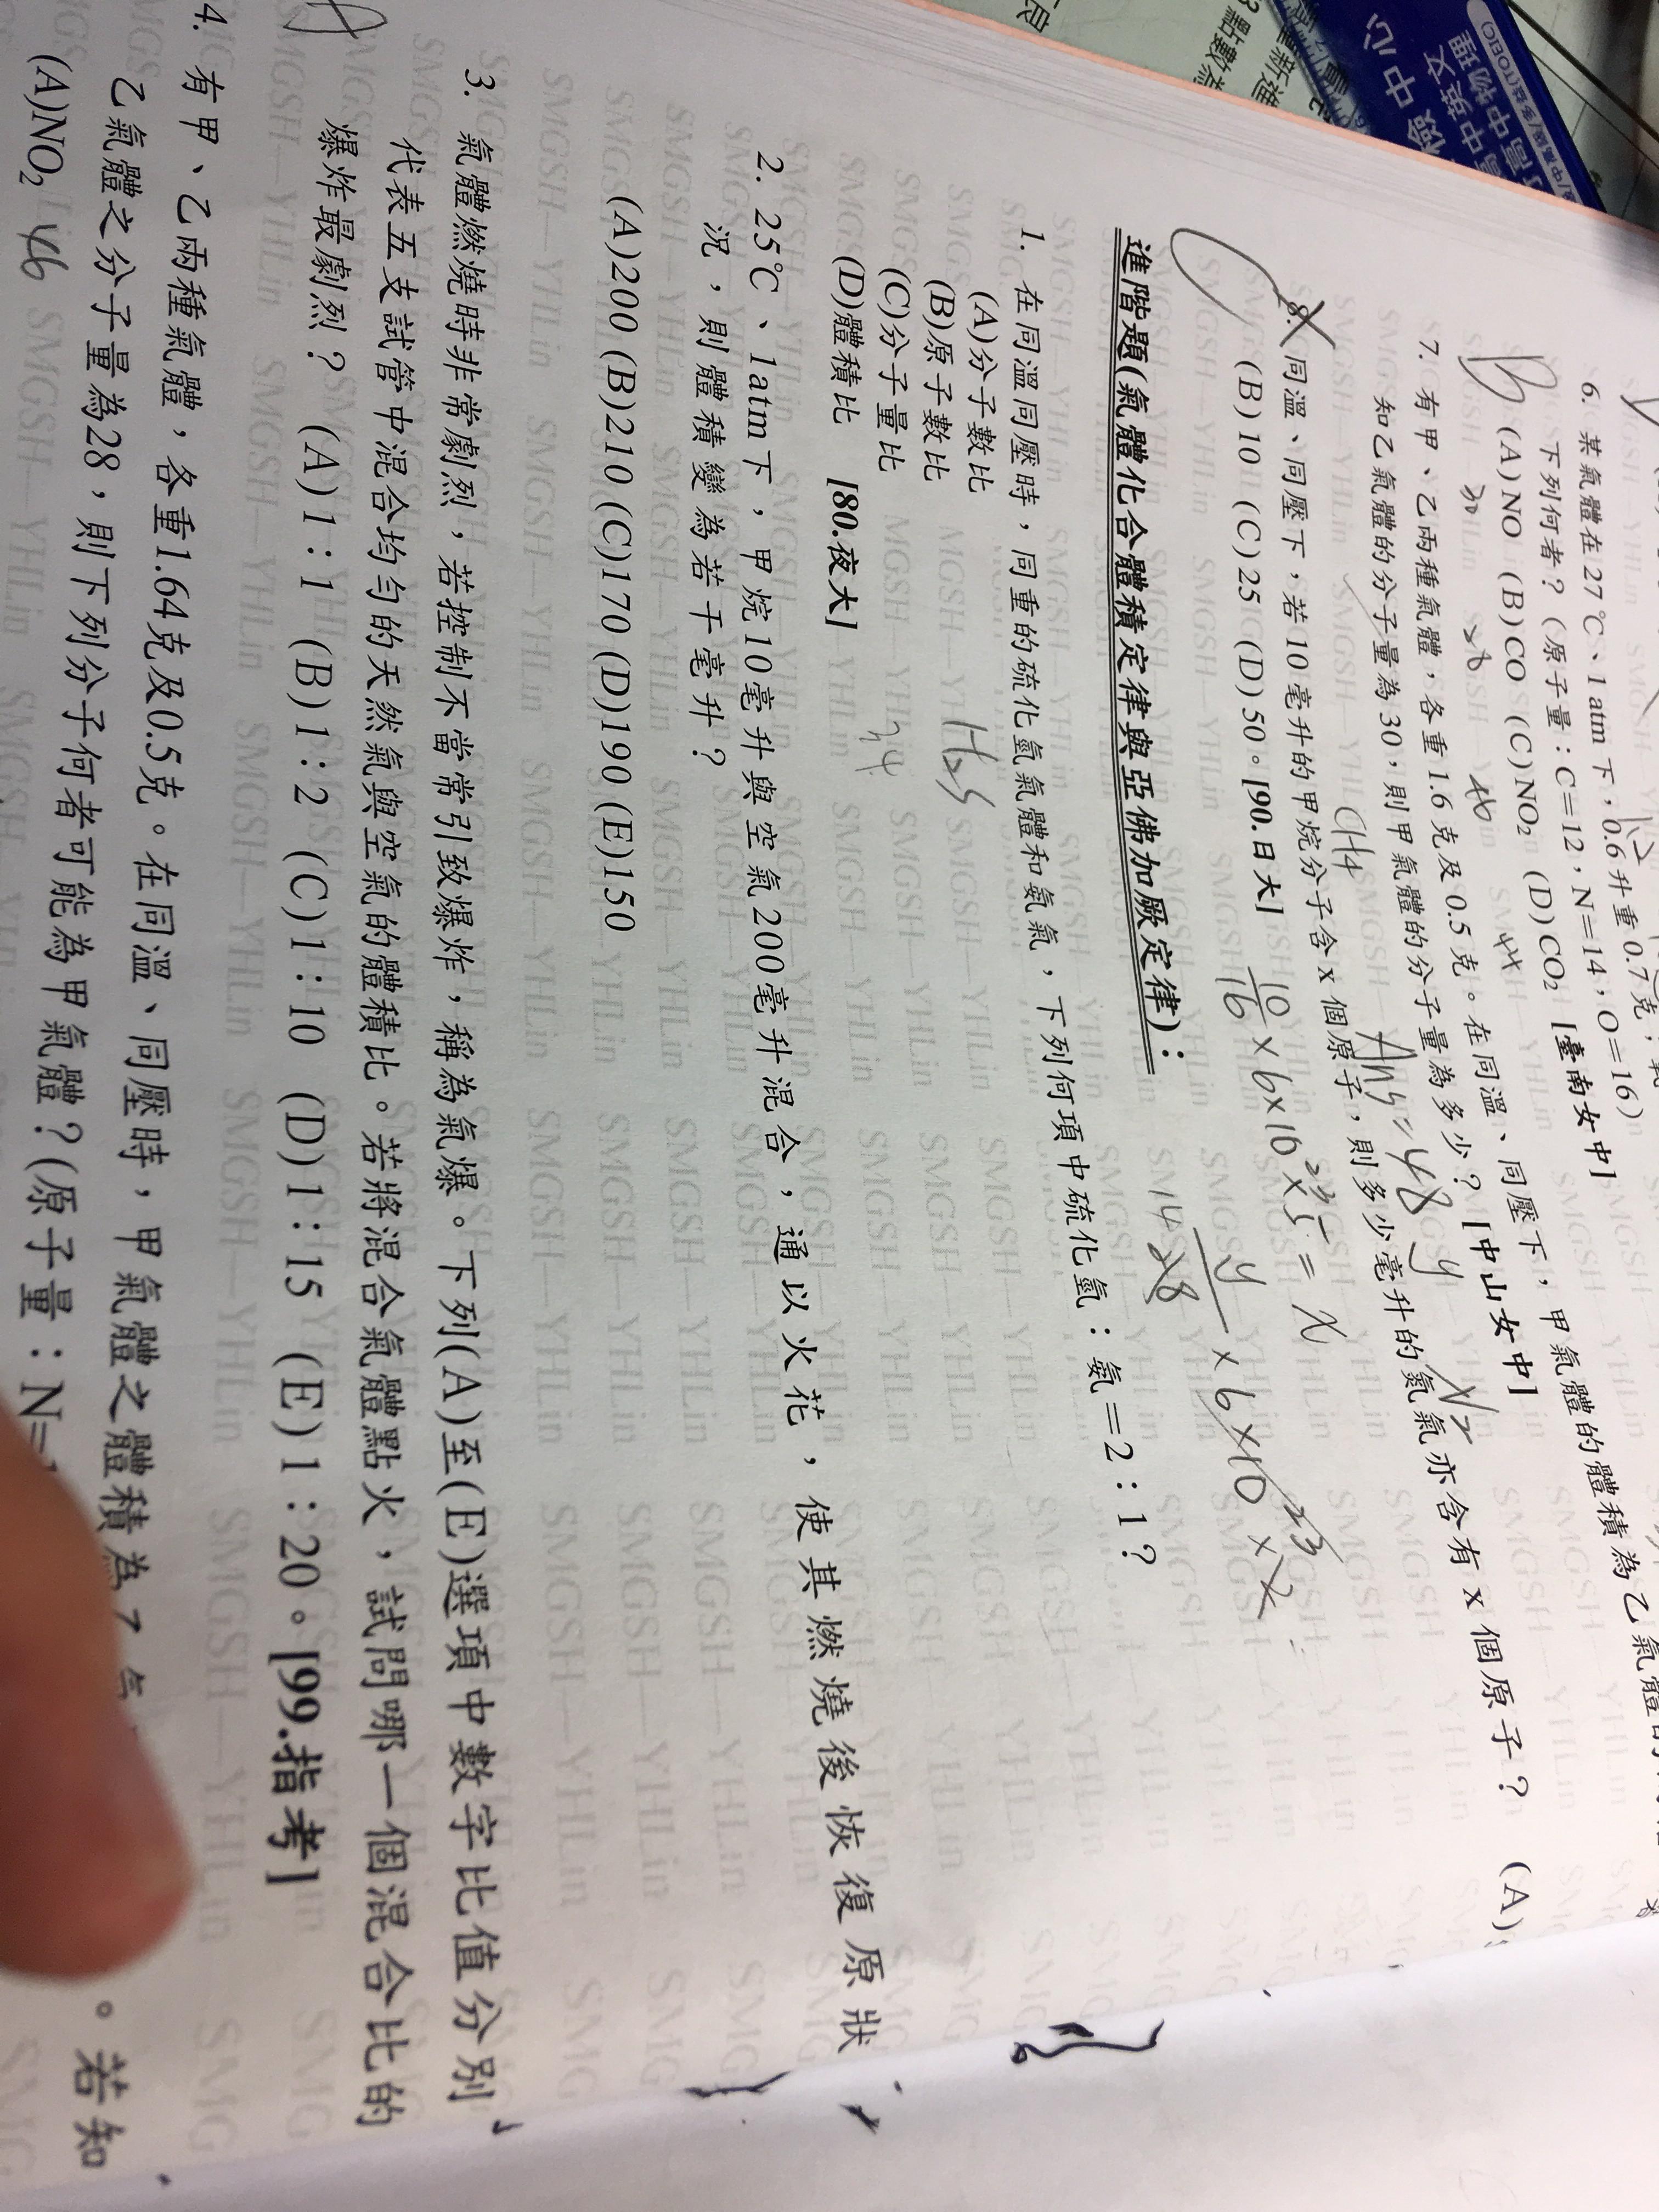 6. 某氣體在27℃、1atm下，0.6升重0.7克，
下列何者？(原子量：C=12，N=14，O=16)
(A)NO (B)CO (C)NO2 (D)CO2 [臺南女中]
30 28 46 44
7. 有甲、乙兩種氣體，各重1.6克及0.5克。在同溫、同壓下，甲氣體的體積為乙氣體的
知乙氣體的分子量為30，則甲氣體的分子量為多少？[中山女中]
Ans = 48
CH4 y N2
8. 同溫、同壓下，若10毫升的甲烷分子含x個原子，則多少毫升的氮氣亦含有x個原子？ (A)
(B)10 (C)25 (D)50。[90.日大]
10/16 × 6×10^23 ×5 = x
y/28 × 6×10^23 ×2
14
進階題(氣體化合體積定律與亞佛加厥定律)：
1. 在同溫同壓時，同重的硫化氫氣體和氨氣，下列何項中硫化氫：氨＝2：1？
(A)分子數比
(B)原子數比
(C)分子量比
(D)體積比 [80.夜大]
H2S
34
2. 25℃、1atm下，甲烷10毫升與空氣200毫升混合，通以火花，使其燃燒後恢復原狀
況，則體積變為若干毫升？
(A)200 (B)210 (C)170 (D)190 (E)150
3. 氣體燃燒時非常劇烈，若控制不當常引致爆炸，稱為氣爆。下列(A)至(E)選項中數字比值分別
代表五支試管中混合均勻的天然氣與空氣的體積比。若將混合氣體點火，試問哪一個混合比的
爆炸最劇烈？ (A)1：1 (B)1：2 (C)1：10 (D)1：15 (E)1：20。[99.指考]
4. 有甲、乙兩種氣體，各重1.64克及0.5克。在同溫、同壓時，甲氣體之體積為
。若知
乙氣體之分子量為28，則下列分子何者可能為甲氣體？(原子量：N=
(A)NO2 46
SMGSH—YHLin